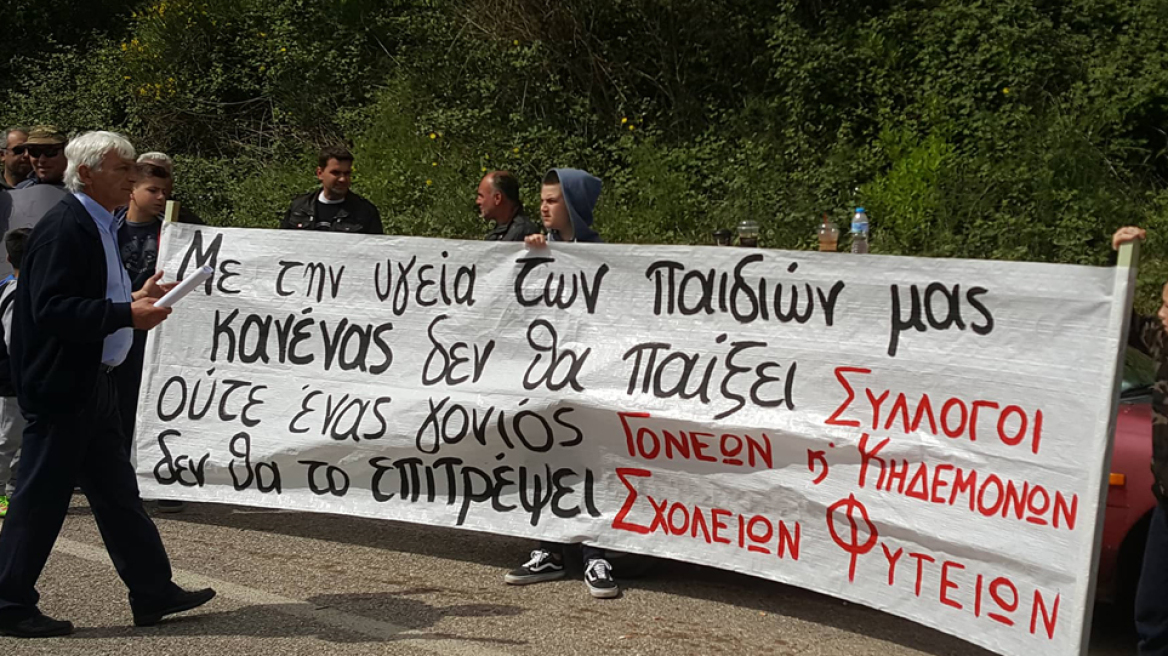 Με την υγεία των παιδιών μας
κανένας δεν θα παίξει
ούτε ένας γονιός
δεν θα το επιτρέψει
ΣΥΛΛΟΓΟΙ
ΓΟΝΕΩΝ & ΚΗΔΕΜΟΝΩΝ
ΣΧΟΛΕΙΩΝ ΦΥΤΕΙΩΝ